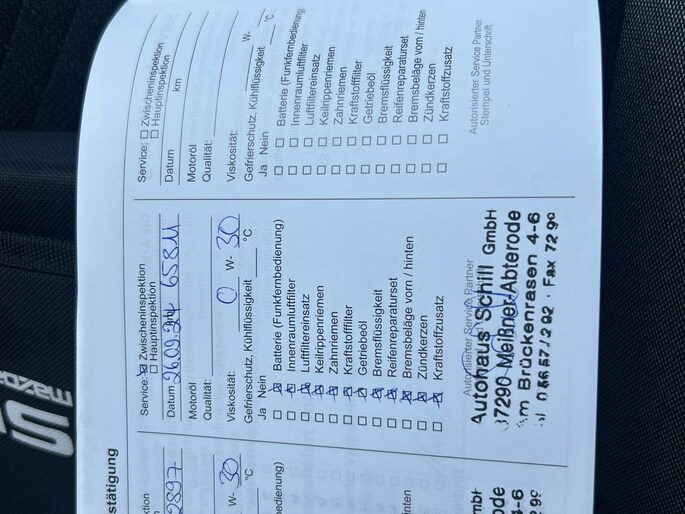 stätigung
ktion
2897
W- 30
°C
edienung)
inten
mbH
ode
4-6
2 99
Service: ☒ Zwischeninspektion
☐ Hauptinspektion
Datum 26.09.24 65811
Motoröl
Qualität:
Viskosität: 0 W- 30
Gefrierschutz, Kühlflüssigkeit °C
Ja Nein
☐ ☒ Batterie (Funkfernbedienung)
☐ ☒ Innenraumluftfilter
☐ ☒ Luftfiltereinsatz
☐ ☒ Keilrippenriemen
☐ ☒ Zahnriemen
☐ ☒ Kraftstofffilter
☐ ☒ Getriebeöl
☐ ☒ Bremsflüssigkeit
☐ ☒ Reifenreparaturset
☐ ☒ Bremsbeläge vorn / hinten
☐ ☒ Zündkerzen
☐ ☒ Kraftstoffzusatz
Autorisierter Service Partner
Autohaus Schill GmbH
37290 Meißner-Abterode
Am Brückenrasen 4-6
Fax 72 99
Service: ☐ Zwischeninspektion
☐ Hauptinspektion
Datum km
Motoröl
Qualität:
Viskosität: W-
Gefrierschutz, Kühlflüssigkeit °C
Ja Nein
☐ ☐ Batterie (Funkfernbedienung
☐ ☐ Innenraumluftfilter
☐ ☐ Luftfiltereinsatz
☐ ☐ Keilrippenriemen
☐ ☐ Zahnriemen
☐ ☐ Kraftstofffilter
☐ ☐ Getriebeöl
☐ ☐ Bremsflüssigkeit
☐ ☐ Reifenreparaturset
☐ ☐ Bremsbeläge vorn / hinten
☐ ☐ Zündkerzen
☐ ☐ Kraftstoffzusatz
Autorisierter Service Partner
Stempel und Unterschrift